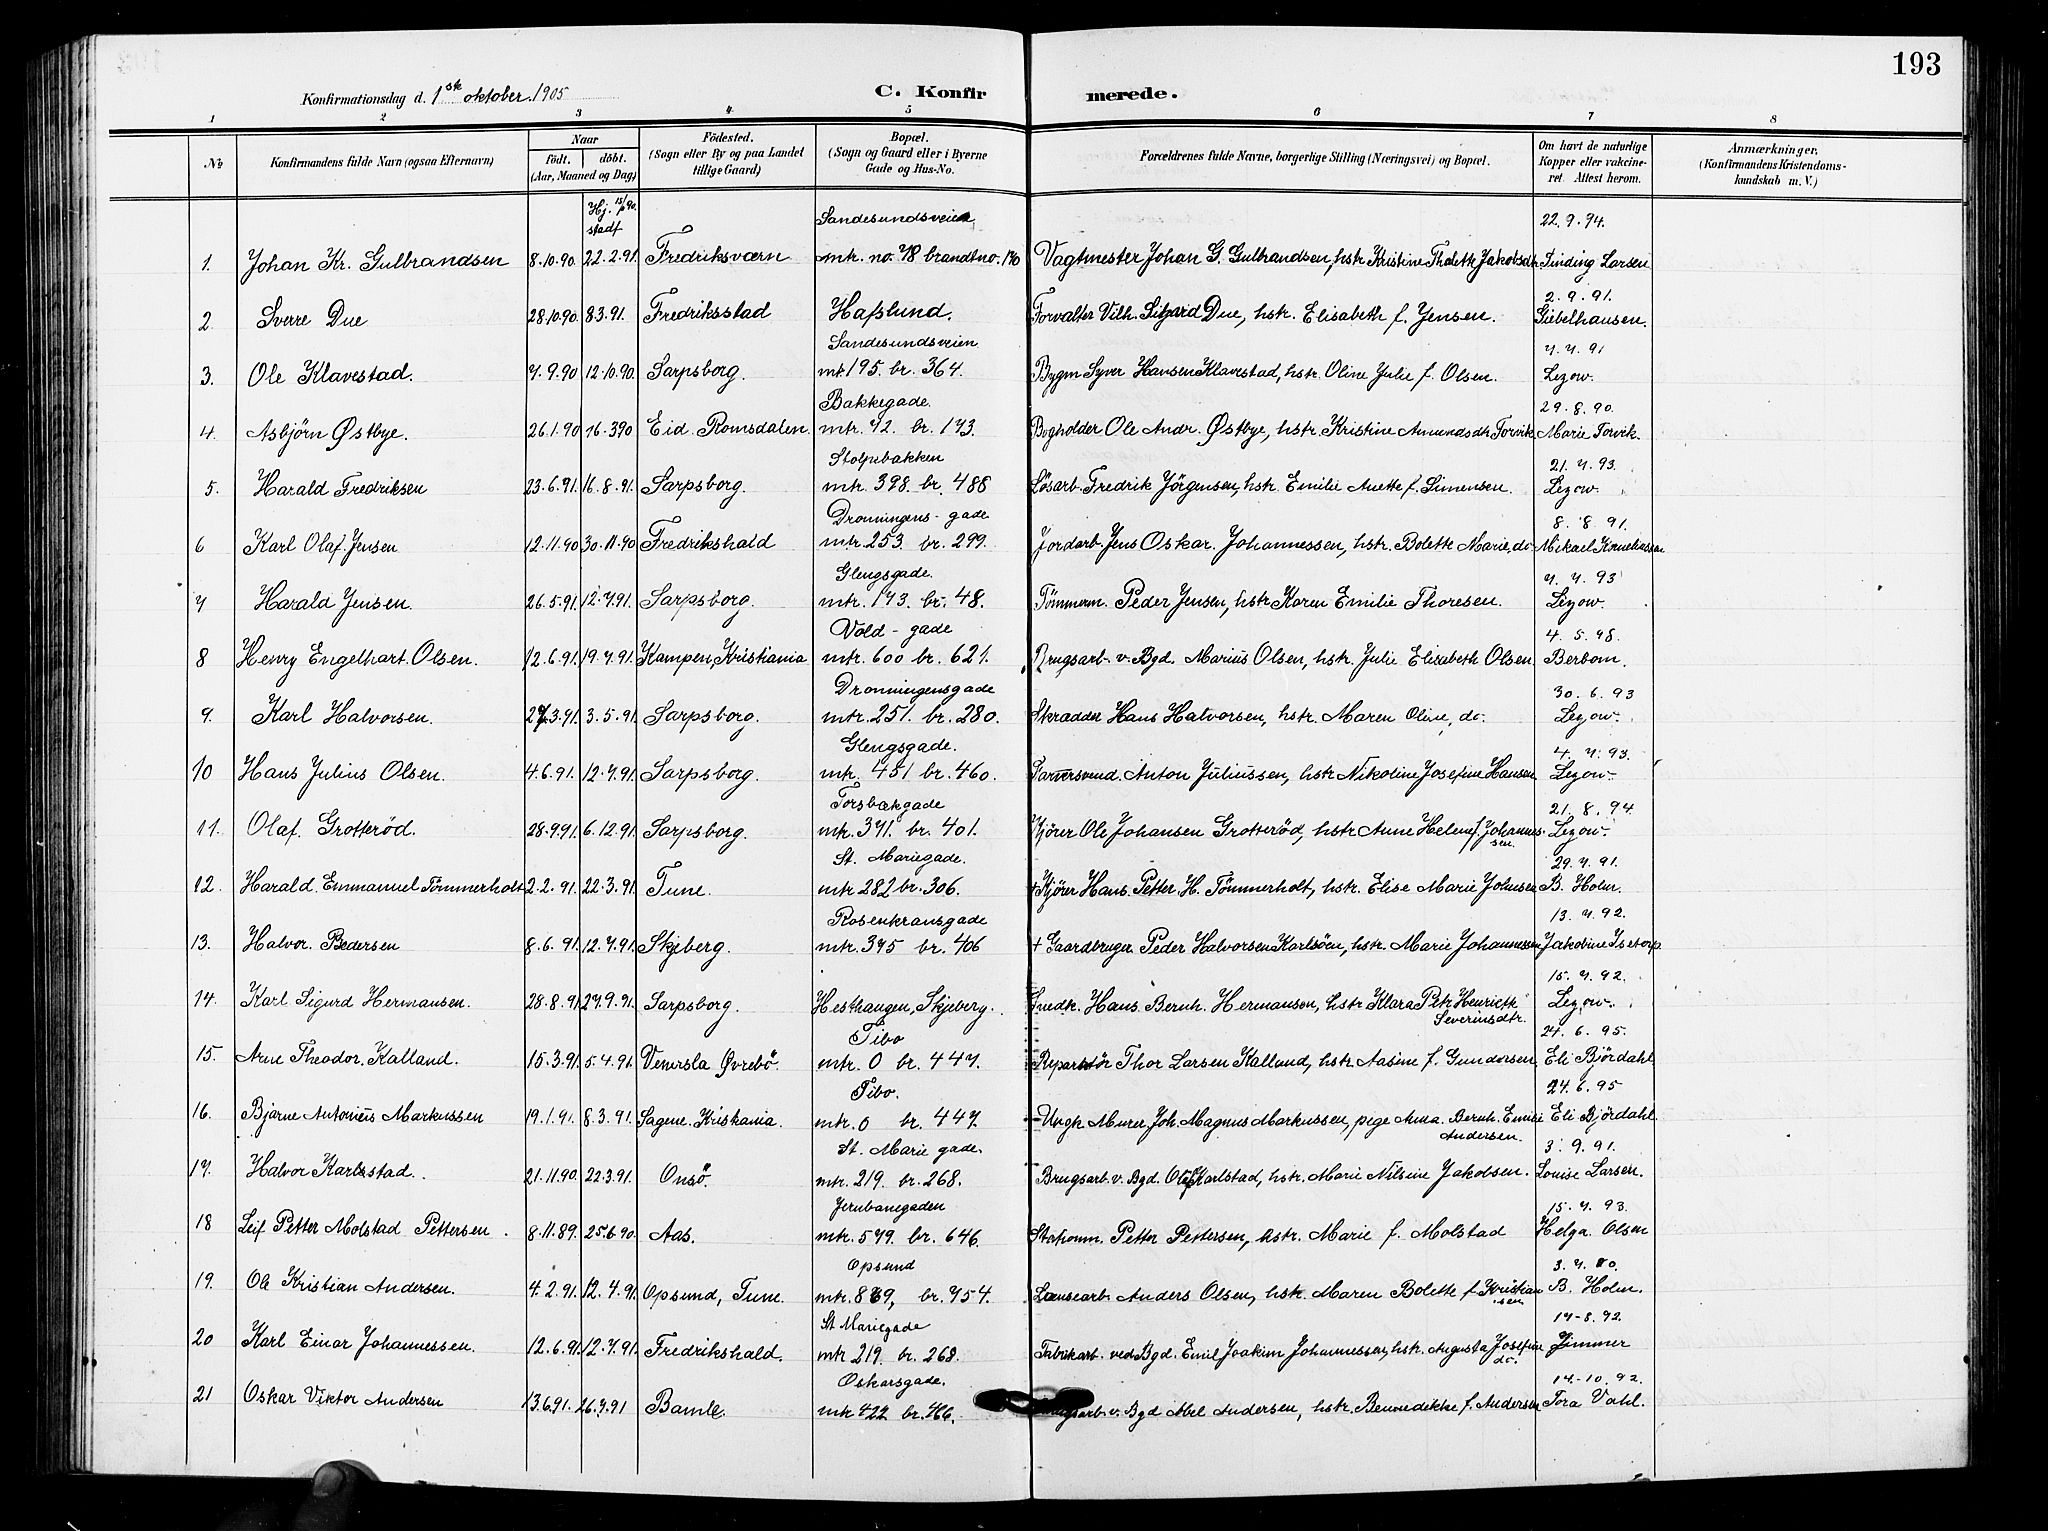 193
Konfirmationsdag d. 1ste oktober 1905 C. Konfir merede.
1 2 3 4 5 6 7 8
No Konfirmandens fulde Navn (ogsaa Efternavn) Naar født. døbt. (Aar, Maaned og Dag) Fødested. (Sogn eller By og paa Landet tillige Gaard) Bopæl. (Sogn og Gaard eller i Byerne Gade og Hus-No. Forældrenes fulde Navne, borgerlige Stilling (Næringsvei) og Bopæl. Om havt de naturlige Kopper eller vakcineret. Attest herom. Anmærkninger, (Konfirmandens Kristendomskundskab m. V.)
Hj. 15/ 90. Sandesundsveien 22.9.94.
stadf
1. Johan Kr. Gulbrandsen 8.10.90. 22.2.91. Fredriksværn mtr. no. 78 brandtno. 170 Vagtmester Johan G. Gulbrandsen, hstr. Kristine Jakobsdtr. Sinding Larsen
2.9.91.
2. Sverre Due 28.10.90. 8.3.91. Fredriksstad Hafslund. Forvalter Vilh. Sigvard Due, hstr. Elisabeth f. Jensen. Giebelhausen.
Sandesundsveien 7.7.91
3. Ole Klavestad. 7.9.90 12.10.90. Sarpsborg. mtr. 195. br. 364. Bygm Syver Hansen Klavestad, hstr. Oline Julie f. Olsen. Lezow.
Bakkegade. 29.8.90.
4. Asbjörn Østbye. 26.1.90 16.3.90 Eid. Romsdalen. mtr. 72. br. 173. Bogholder Ole Andr. Østbye, hstr. Kristine Amundsdtr. Torvik. Marie Torvik.
Stolpebakken 21.7.93.
5. Harald Fredriksen 23.6.91. 16.8.91. Sarpsborg. mtr. 398. br. 488 Løsarb. Fredrik Jörgensen, hstr. Emilie Anette f. Simensen. Lezow.
Dronningens-gade 8.8.91.
6 Karl Olaf Jensen 12.11.90 30.11.90 Fredrikshald mtr. 253. br. 299. Jordarb. Jens Oskar Johannessen, hstr. Bolette Marie, do. Mikael Korneliussen
Glengsgade. 7.7.93
7 Harald Jensen. 26.5.91. 12.7.91. Sarpsborg. mtr. 173. br. 48. Tömmerm. Peder Jensen, hstr. Karen Emilie Thoresen. Lezow.
Vold-gade 4.5.98.
8 Henry Engelhart Olsen. 12.6.91. 19.7.91. Kampen, Kristiania mtr. 600 br. 621. Brugsarb. v. Bgd. Marius Olsen, hstr. Julie Elisabeth Olsen. Berbom.
Dronningensgade 30.6.93
9. Karl Halvorsen. 27.3.91. 3.5.91. Sarpsborg. mtr. 251. br. 280. Skrædder Hans Halvorsen, hstr. Maren Oline, do. Lezow.
Glengsgade. 4.7.93.
10 Hans Julius Olsen. 4.6.91. 12.7.91. Sarpsborg. mtr. 451 br. 460. Garversvend. Anton Juliussen, hstr. Nikoline Josefine Hansen Lezow.
Torsbækgade 21.8.94
11. Olaf Grotterød. 28.9.91. 6.12.91. Sarpsborg. mtr. 371. br. 401. Kjører Ole Johansen Grotterød, hstr. Anne Helene f. Johannessen. Lezow.
St. Mariegade. 29.7.91.
12. Harald Emmanuel Tömmerholt 2.2.91. 22.3.91. Tune. mtr 282 br. 306. † Kjører Hans Petter H. Tömmerholt, hstr. Elise Marie Johnsen B. Holm.
Rosenkransgade 13.7.92.
13. Halvor Pedersen 8.6.91. 12.7.91. Skjeberg. mtr. 375 br. 406 † Gaardbruger Peder Halvorsen Karlsöen, hstr. Marie Johannessen Jakobine Isetorp
15.7.92.
14. Karl Sigurd Hermansen. 28.8.91. 27.9.91. Sarpsborg. Hesthaugen, Skjeberg. Snedk. Hans Bernh. Hermansen, hstr Klara Petr. Henriette Severinsdtr. Lezow.
Tibo 24.6.95.
15. Arne Theodor Kalland. 15.3.91. 5.4.91. Vennesla Øvrebö. mtr. 0 br. 447. Reparatör Thor Larsen Kalland, hstr. Aasine f. Gundersen. Eli Björdahl
Tibo. 24.6.95
16. Bjarne Antonius Markussen 19.1.91. 8.3.91. Sagene. Kristiania. mtr. 0 br. 447. Ungk. Murer Joh. Magnus Markussen, pige Anna Bernh. Emilie Andersen. Eli Björdahl.
St. Marie gade. 3.9.91.
17. Halvor Karlsstad. 21.11.90. 22.3.91. Onsö. mtr. 219. br. 268. Brugsarb. v. Bgd. Ole Karlstad, hstr. Marie Nilsine Jakobsen. Louise Larsen.
Jernbanegaden 15.7.93.
18 Leif Petter Molstad Pettersen. 8.11.89. 25.6.90. Aas. mtr. 579. br. 646. Stationm. Petter Pettersen, hstr. Marie f. Molstad Helga Olsen
Opsund 3.7.00.
19. Ole Kristian Andersen. 4.2.91. 12.4.91. Opsund, Tune. mtr. 869, br. 754. Lænsearb. Anders Olsen, hstr. Maren Bolette f. Kristiansen. B. Holm.
St Mariegade 17-8.92.
20 Karl Einar Johannessen. 12.6.91. 12.7.91. Fredrikshald. mtr 219. br. 268. Fabrikarb. ved Bgd. Emil Joakim Johannessen, hstr. Augusta Josefine do. Zimmer
Oskarsgade. 14-10.92.
21 Oskar Viktor Andersen 13.6.91. 26.7.91 Bamle. mtr 422 br. 466. Brugsarb. v. Bgd Abel Andersen, hstr. Bennedikke f. Andersen Tora Vahl.